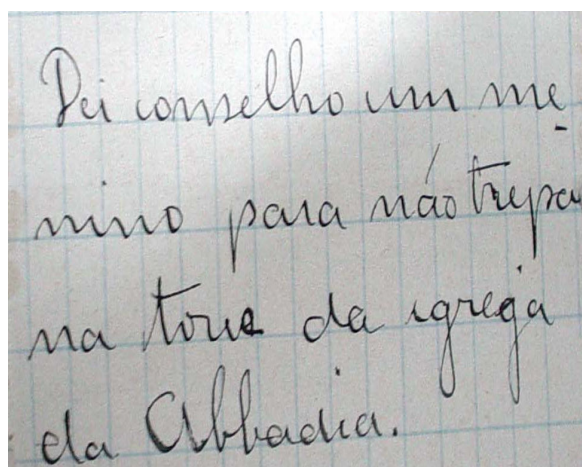 Dei conselho um me-
nino para não trepa
na torre da igreja
da Abbadia.